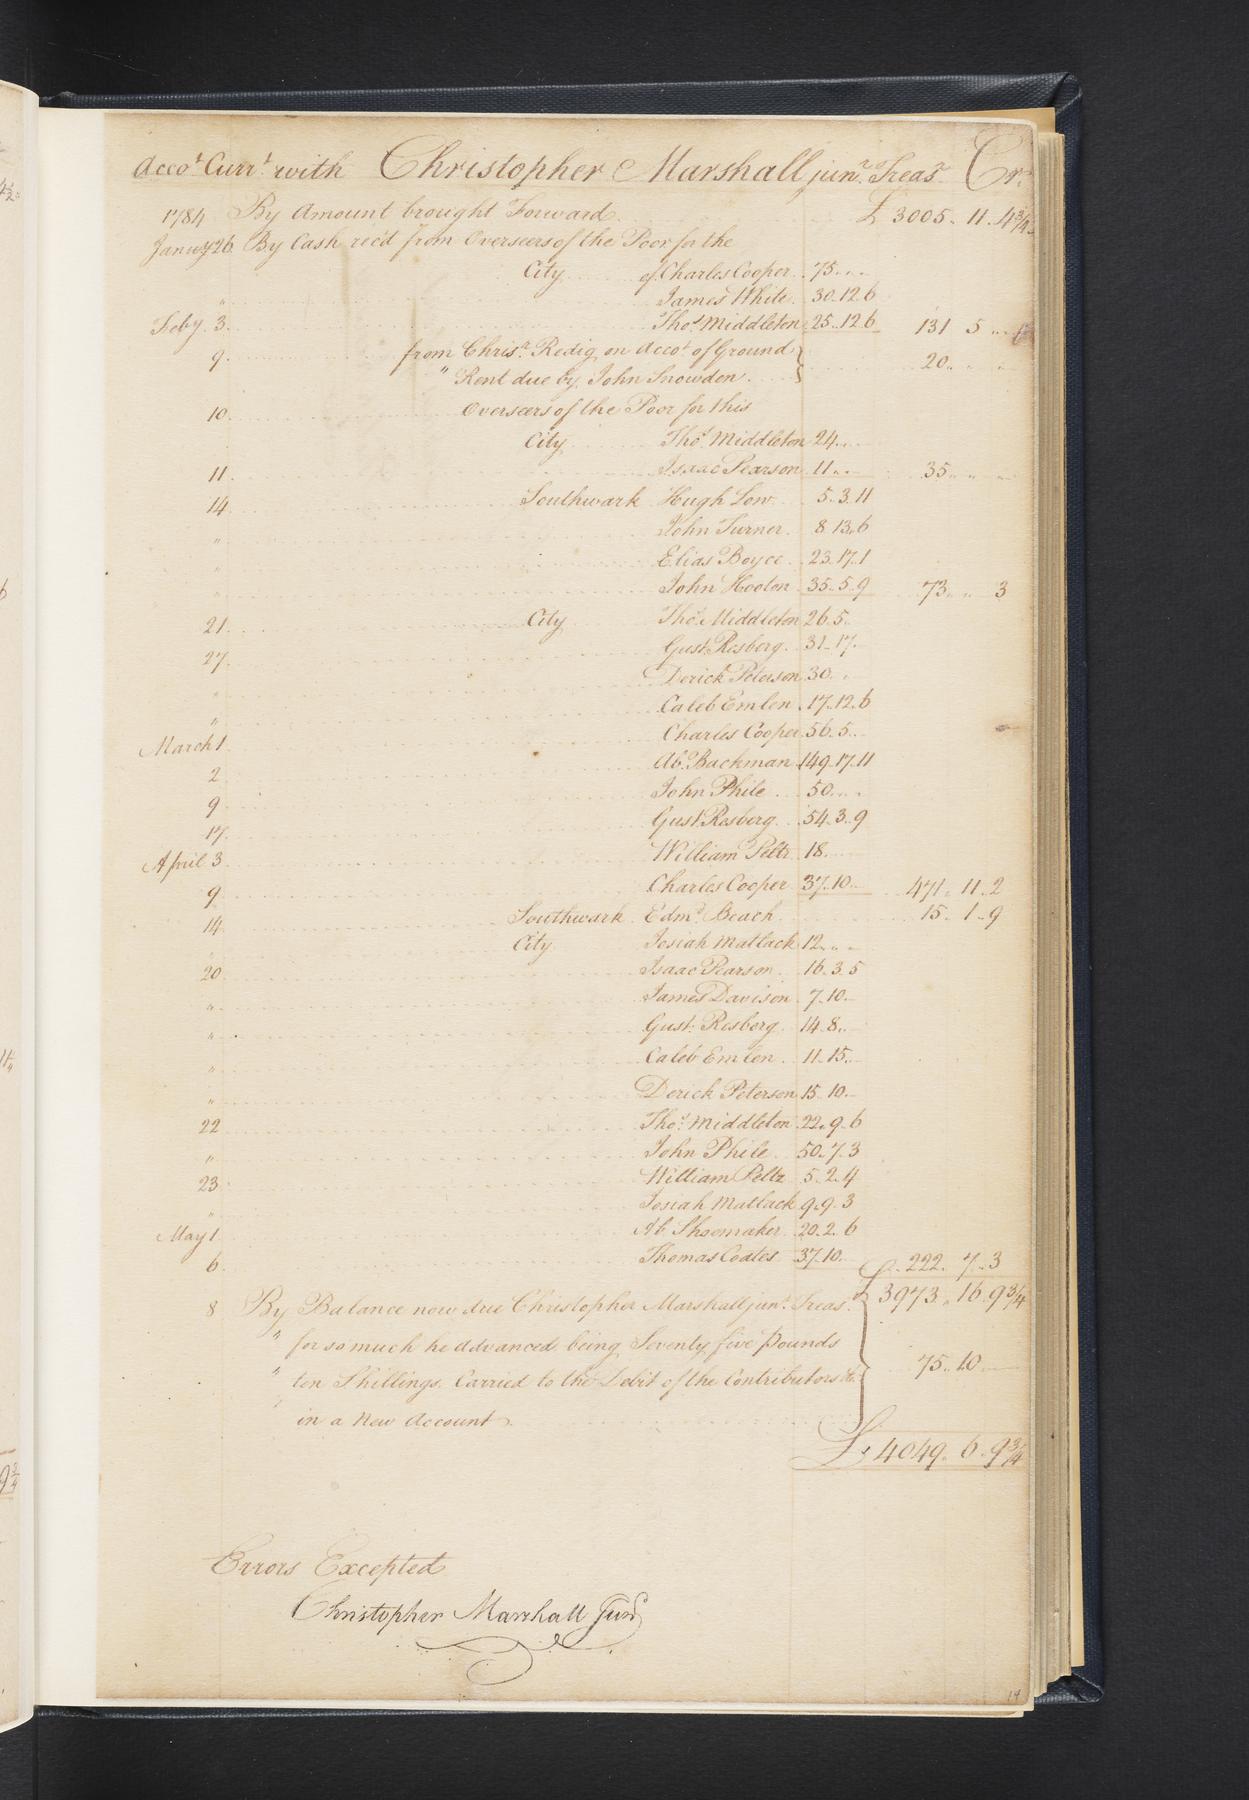 Acco.t Curr.t with Christopher Marshall jun.r Treas.r Cr.
1784 By Amount brought Forward £ 3005. 11. 4 3/4
Janury 26. By Cash rec'd from Overseers of the Poor for the
City of Charles Cooper 75. . .
" James White 30. 12. 6
Feby. 3. Tho.s Middleton 25. 12. 6 131 5 ..
9. from Chris.r Redig on Acco.t of Ground
" Rent due by John Snowden 20. . .
10. Overseers of the Poor for this
City Tho.s Middleton 24. . .
11. Isaac Pearson 11. . . 35 " "
14. Southwark Hugh Low 5. 3. 11
" John Turner 8 13. 6
" Elias Boyce 23. 17. 1
" John Hooton 35. 5. 9 73. . 3
21. City Tho.s Middleton 26. 5.
27. Gust. Risberg 31. 17.
" Derick Peterson 30. .
" Caleb Emlen 17. 12. 6
March 1 Charles Cooper 56. 5. .
2 Ab. Backman 149. 17. 11
9 John Phile 50. . .
17. Gust. Risberg 54. 3. 9
April 3 William Peltz 18.
9 Charles Cooper 37. 10. 471. 11. 2
14. Southwark Edm.d Beach 15. 1. 9
" City Josiah Matlack 12. . .
20 Isaac Pearson 16. 3. 5
" James Davison 7. 10.
" Gust. Risberg 14. 8.
" Caleb Emlen 11. 15.
" Derick Peterson 15. 10.
22 Tho.s Middleton 22. 9. 6
" John Phile 50. 7. 3
23 William Peltz 5. 2. 4
" Josiah Matlack 9. 9. 3
May 1 Ab. Shoemaker 20. 2. 6
6. Thomas Coates 37. 10. 222. 7. 3
£ 3973. 16. 9 3/4
8 By Balance now due Christopher Marshall jun.r Treas.r
" for so much he advanced being Seventy five Pounds
" ten Shillings. Carried to the Debit of the Contributors &c. 75. 10
" in a New Account
£ 4049. 6. 9 3/4
Errors Excepted
Christopher Marshall Jun.r
14